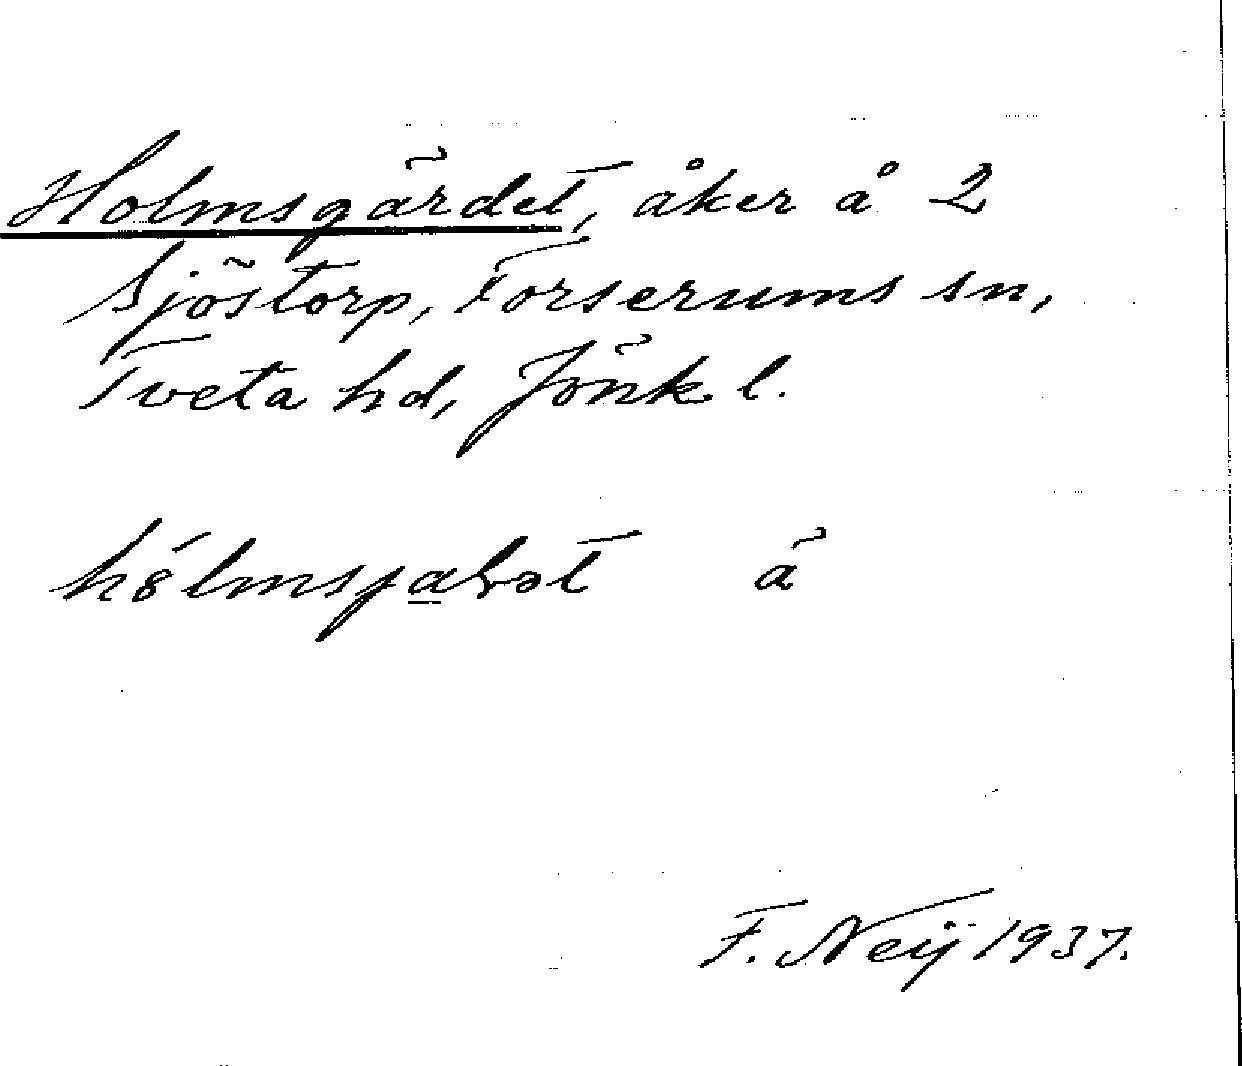 Holmsgärdet, åker å 2
Sjöstorp, Forserums sn,
Tveta hd, Jönk. l.
ä
F. Neij 1937.